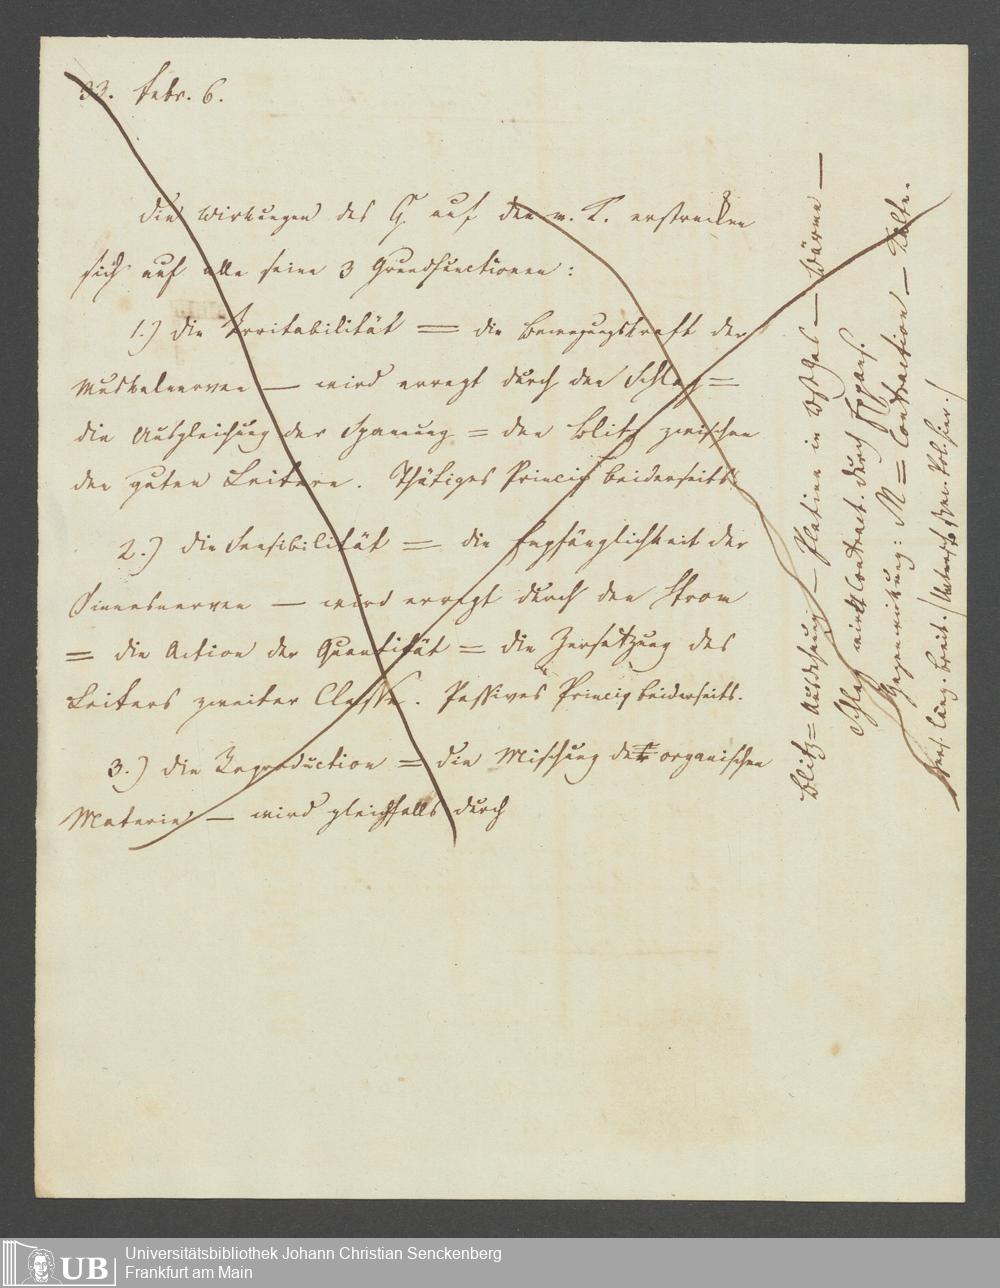 33. Febr. 6.
Die Wirkungen des G. auf den m. K. erstrecken
sich auf alle seine 3 Grundfunctionen:
1.) die Irritabilität = die Bewegungskraft der
Muskelnerven — wird erregt durch den Schlag =
die Ausgleichung der Spannung = den Blitz zwischen
den guten Leitern. Thätiges Princip beiderseits.
2.) die Sensibilität = die Empfänglichkeit der
Sinnesnerven — wird erregt durch den Strom
= die Action der Quantität = die Zersetzung des
Leiters zweiter Classe. Passives Princip beiderseits.
3.) die Reproduction = die Mischung der organischen
Materie — wird gleichfalls durch
Blitz = Ausdehnung — Platina in — Wärme —
Schlag wirkt Contract. durch Expans.
Gegenwirkung: M = Contraction — Kälte.
Universitätsbibliothek Johann Christian Senckenberg
Frankfurt am Main
UB